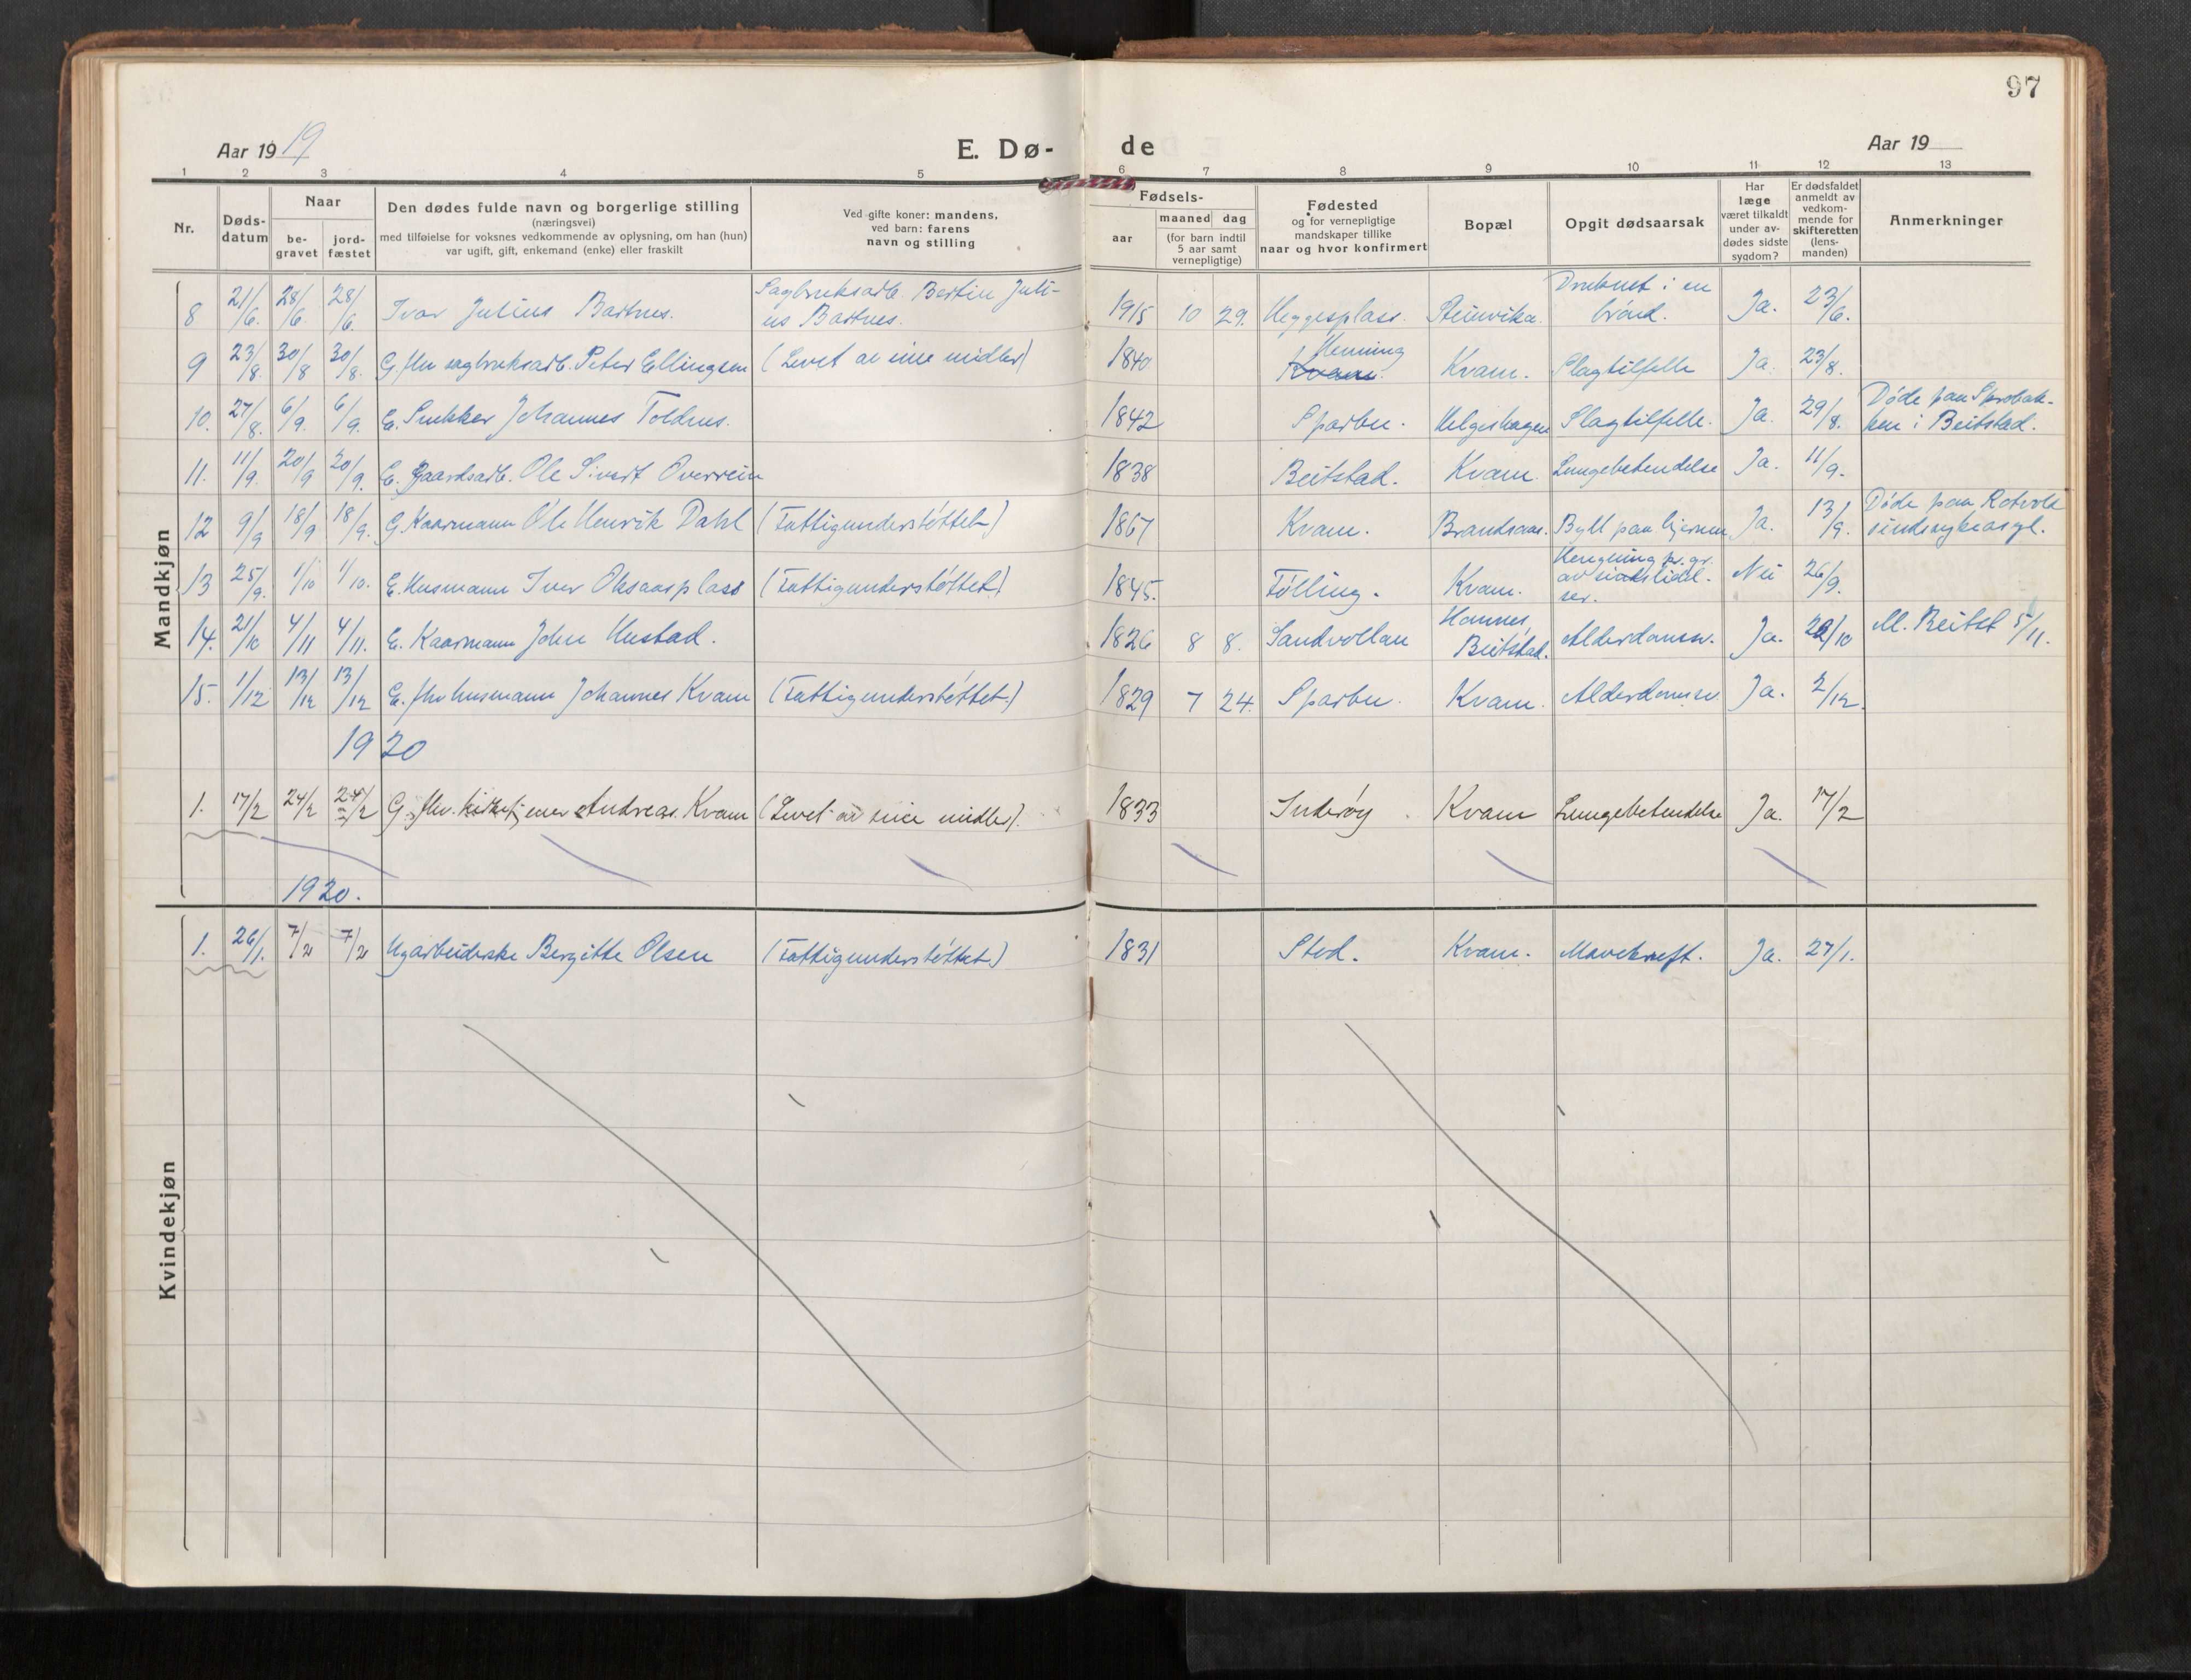 97
Aar 1919
E. Dø-
de
Aar 19
1 2 3 4 5 6 7 8 9 10 11 12 13
Nr.
Døds-
datum
Naar
be-
gravet
jord-
fæstet
Den dødes fulde navn og borgerlige stilling
(næringsvei)
med tilføielse for voksnes vedkommende av oplysning, om han (hun)
var ugift, gift, enkemand (enke) eller fraskilt
Ved gifte koner: mandens,
ved barn: farens
navn og stilling
Fødsels-
aar
maaned dag
(for barn indtil
5 aar samt
vernepligtige)
Fødested
og for vernepligtige
mandskaper tillike
naar og hvor konfirmert
Bopæl
Opgit dødsaarsak
Har
læge
været tilkaldt
under av-
dødes sidste
sygdom?
Er dødsfaldet
anmeldt av
vedkom-
mende for
skifteretten
(lens-
manden)
Anmerkninger
Mandkjøn
8 21/6. 28/6 28/6. Ivar Julius Bartnes. Sagbruksarb. Bertin Juli-
us Bartnes. 1915 10 29. Heggesplass. Steinvika. Druknet i en
brönd. Ja. 23/6.
9 23/8. 30/8 30/8. G. fhv sagbruksarb. Peter Ellingsen (Levet av sine midler) 1840 Henning
Kvam. Kvam. Slagtilfelle Ja. 23/8.
10. 27/8. 6/9. 6/9. E. Snekker Johannes Toldnes. 1842 Sparbu. Helgeshagen Slagtilfelle. Ja. 29/8. Døde paa Sprobak-
ken i Beitstad.
11. 11/9. 20/9 20/9. E. Gaardsarb. Ole Sivert Overrein 1838 Beitstad. Kvam. Lungebetendelse Ja. 11/9.
12 9/9 18/9 18/9. G. Kaarmann Ole Henrik Dahl (Fattigunderstöttet) 1867 Kvam. Brandsaas. Byll paa hjernen Ja. 13/9. Døde paa Rotvold
sindsykeasyl.
13 25/9. 1/10 1/10. E. Husmann Iver Oksaasplass (Fattigunderstöttet) 1845. Fölling. Kvam. Hengning pr. gr.
av sindslidel-
ser. Nei 26/9.
14. 21/10 4/11 4/11. E. Kaarmann John Hustad. 1826 8 8. Sandvollan Hannes,
Beitstad. Alderdomssv. Ja. 22/10 M. Beitst 5/11.
15. 1/12 13/12 13/12 E. fhv husmann Johannes Kvam (Fattigunderstöttet) 1829 7 24. Sparbu. Kvam. Alderdomssv. Ja. 2/12.
1920
1. 17/2 24/2 24/2 G. fhv. kirketjener Andreas Kvam (Levet av sine midler). 1833 Inderøy. Kvam Lungebetendelse Ja. 17/2
1920.
Kvindekjøn
1. 26/1. 7/2 7/2 Ugarbeiderske Bergitte Olsen (Fattigunderstöttet) 1831 Stod. Kvam. Mavekreft. Ja. 27/1.